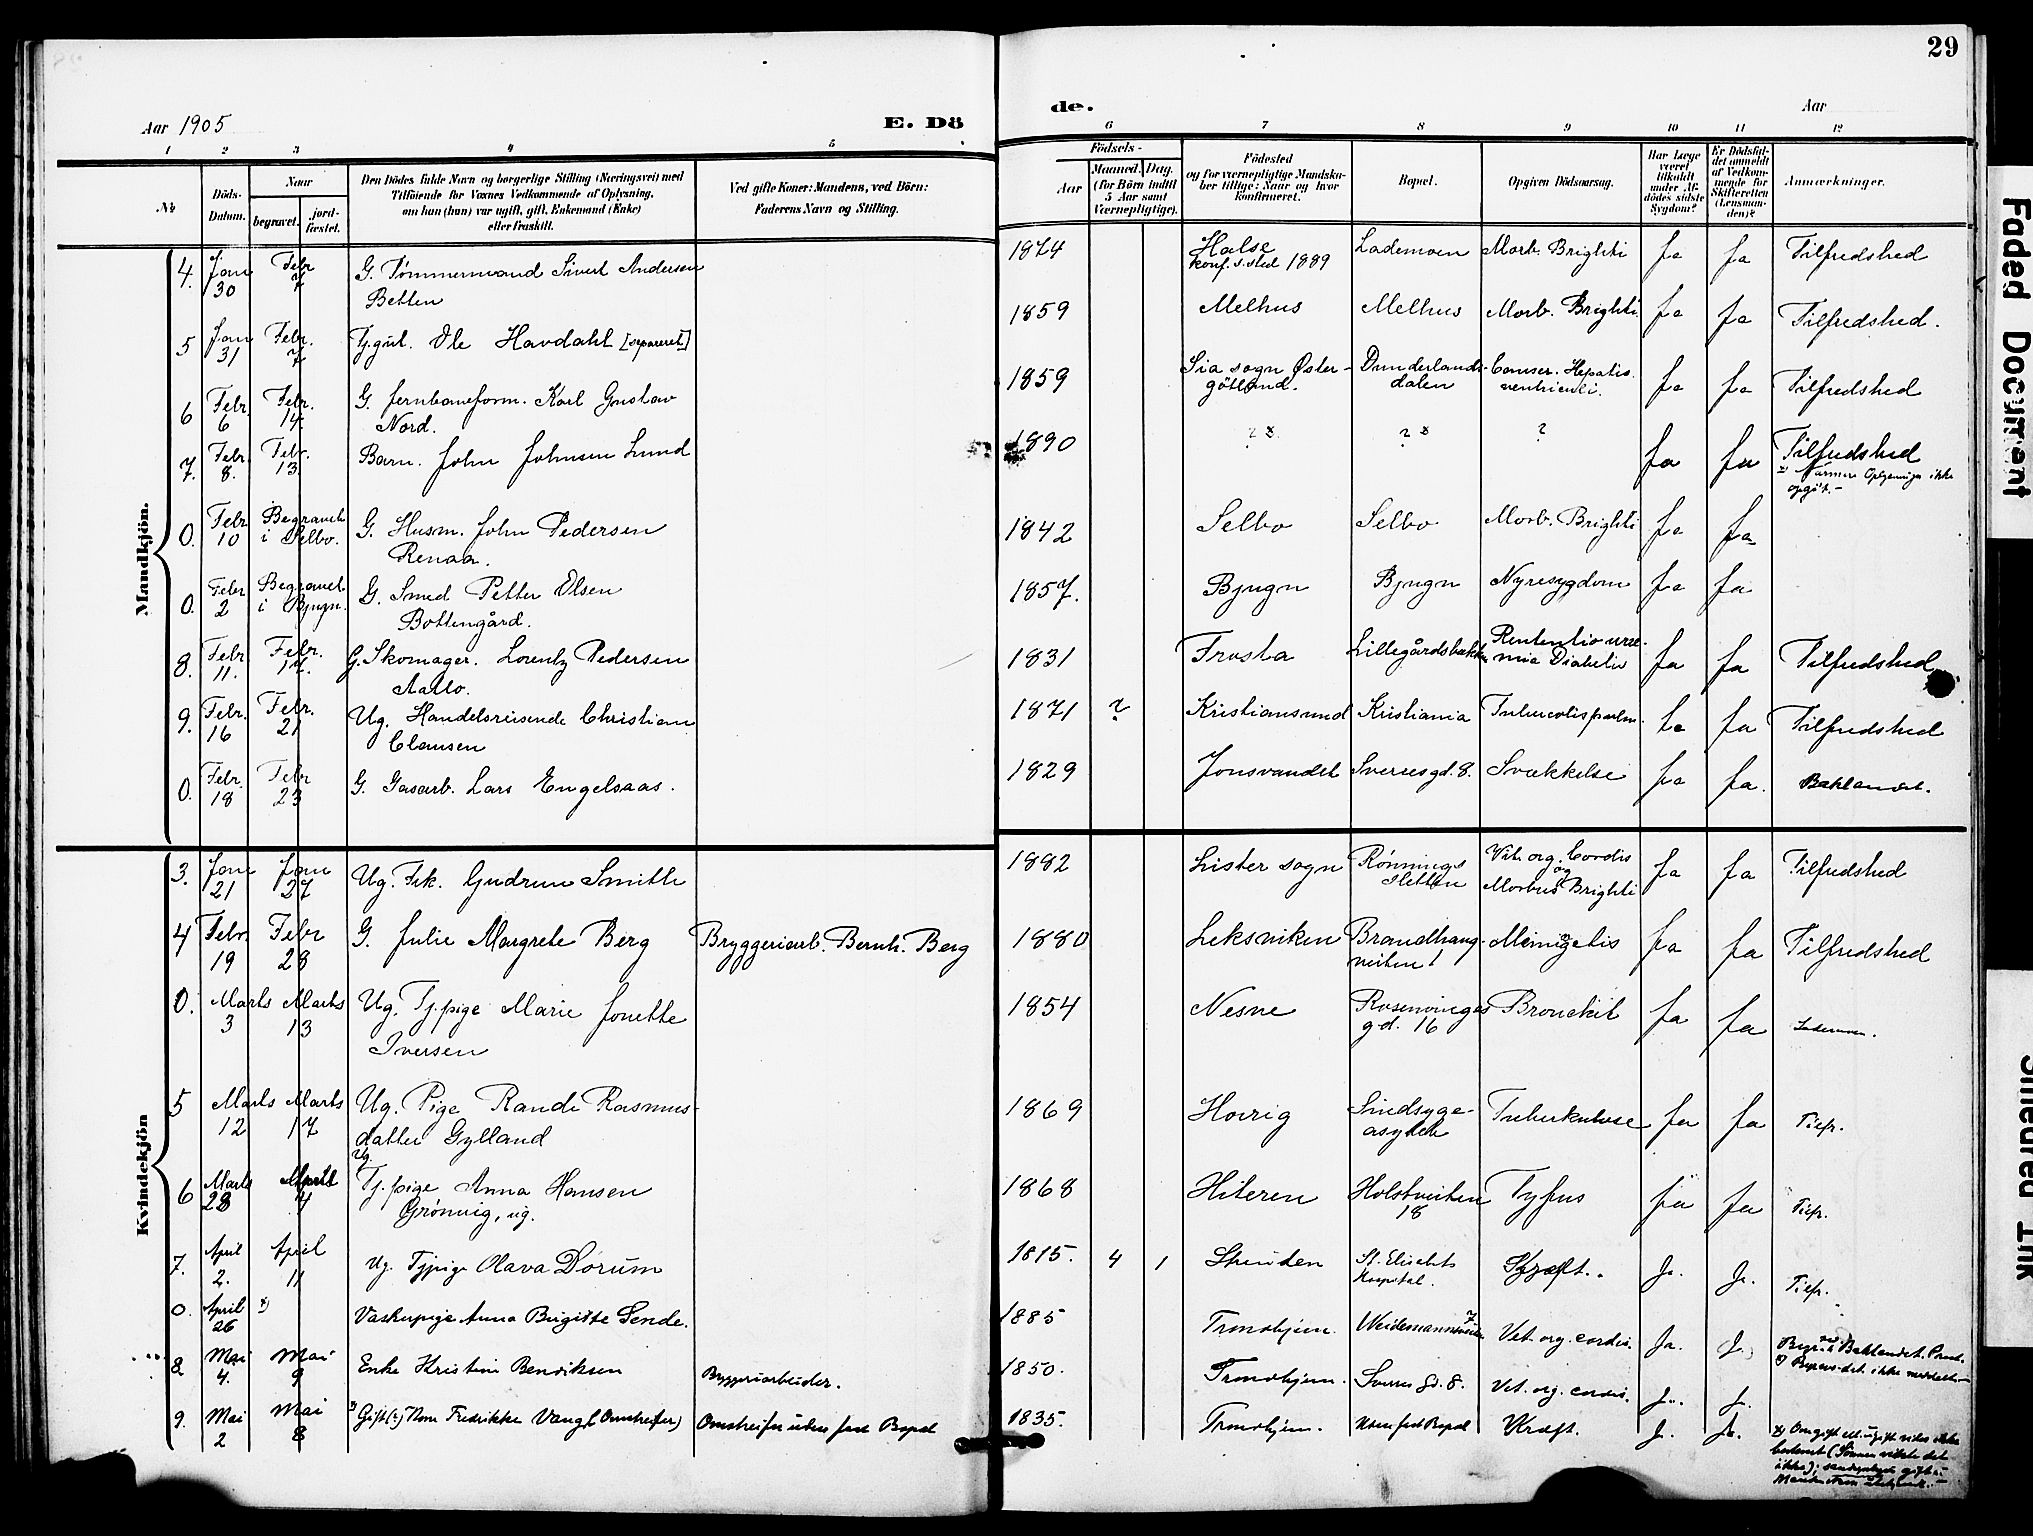 29
Aar 1905
E. Dö
de.
Aar
1 2 3 4 5 6 7 8 9 10 11 12
№
Döds-Datum.
Naar
begravet.
jordfæstet.
Den Dödes fulde Navn og borgerlige Stilling (Næringsvei) med
Tilföiende for Voxnes Vedkommende af Oplysning,
om han (hun) var ugift, gift, Enkemand (Enke)
eller fraskilt.
Ved gifte Koner: Mandens, ved Börn:
Faderens Navn og Stilling.
Födsels-
Aar
Maaned. Dag.
(for Börn indtil
5 Aar samt
Værnepligtige).
Födested
og for værnepligtige Mandskaber tillige: Naar og hvor
Konfirmeret.
Bopæl.
Opgiven Dödsaarsag.
Har Læge
været
tilkaldt
under Afdödes sidste
Sygdom?
Er Dödsfaldet anmeldt
af Vedkommende for
Skifteretten
(Lensmanden)?
Anmærkninger.
Mandkjön.
4. Jan 30 Febr 7 G. Tømmermand Sivert Andersen
Betten
1874 Halse konf. s. sted 1889 Lademoen Morb. Brighti Ja Ja Tilfredshed
5 Jan 31 Febr. 7 Ole Havdahl [separeret]
1859 Melhus Melhus Morb. Brighti Ja Ja Tilfredshed.
6 Febr. 6 Febr. 14 G. Jernbaneform. Karl Gustav
Nord.
1859 Sia sogn Østergötland. Dunderlandsdalen Cancer. Hepatis. ventriculi. Ja Ja Tilfredshed
7. Febr. 8. Febr. 13 Barn. John Johnsen Lund
1890 ? x ? x ? Ja Ja Tilfredshed
x) Nærmere Oplysninger ikke
opgit.-
0. Febr 10 Begravet i Selbo. G. Husm. John Pedersen
Renaa.
1842 Selbo Selbo Morb. Brighti Ja Ja
0. Febr 2 Begravet i Bjugn. G. Smed Petter Olsen
Bottengård.
1857. Bjugn Bjugn Nyresygdom Ja Ja
8. Febr 11. Febr. 17. G. Skomager. Lorentz Pedersen
Aatlo.
1831 Frosta Lillegårdsbakken Diabetis Ja Ja Tilfredshed
9. Febr. 16 Febr. 21 Ug. Handelsreisende Christian
Clausen
1871 ? Kristiansund Kristiania Ja Ja Tilfredshed
0. Febr. 18 Febr 23 G. Gasarb. Lars Engelsaas.
1829 Jonsvandet Sverresgd. 8. Svækkelse Ja Ja. Baklandet.
Kvindekjön
3. Jan 21 Jan 27 Ug. Frk. Gudrun Smith
1882 Lister sogn Rønningsletten Vit. org. Cordis
og
Morbus Brighti Ja Ja Tilfredshed
4 Febr. 19 Febr 28 G. Julie Margrete Berg Bryggeriarb. Bernh. Berg
1880 Leksviken Ja Ja Tilfredshed
0. Marts 3 Marts 13 Ug. Tj.pige Marie Jonette
Iversen
1854 Nesne gd. 16 Bronchit Ja Ja
5 Marts 12 Marts 17 Ug. Pige Rande Rasmusdatter Gylland
1869 Sindsygeasylet Tuberkulose Ja Ja Tilfr.
6 Marts 28 April 4 Ug. Tj.pige Anna Hansen
Grønvig, ug.
1868 Hiteren Holstveiten 18 Tyfus Ja Ja Tilfr.
7. April 2. April 11 Ug. Tjpige Olava Dorum
1815. 4 1 Strinden St. Elisabets
Hospital. Kræft. Ja. Ja. Tilfr.
0. April 26 x) Vaskepige Anna Birgitte Sende.
1885 Trondhjem. Weidemannsveiten 7 Vit. org. cordis. Ja. J. Begr. Baklandet.
8 Mai 4. Mai 9 Enke Kristine Bendiksen Bryggeriarbeider.
1850. Trondhjem. Sverres gd. 8. Vit. org. cordis. J. J.
9. Mai 2 Mai 8 x) Gift(?) Fredrikke Vang (Omstreifer) Omstreifer uden fast Bopæl
1835. Trondhjem. Uden fast Bopæl Kræft. J. Ja.
x) Om gift ell. ugift vides ikke
bestemt (Sønnen vidste det
ikke);
Faded Document
Smeared Ink